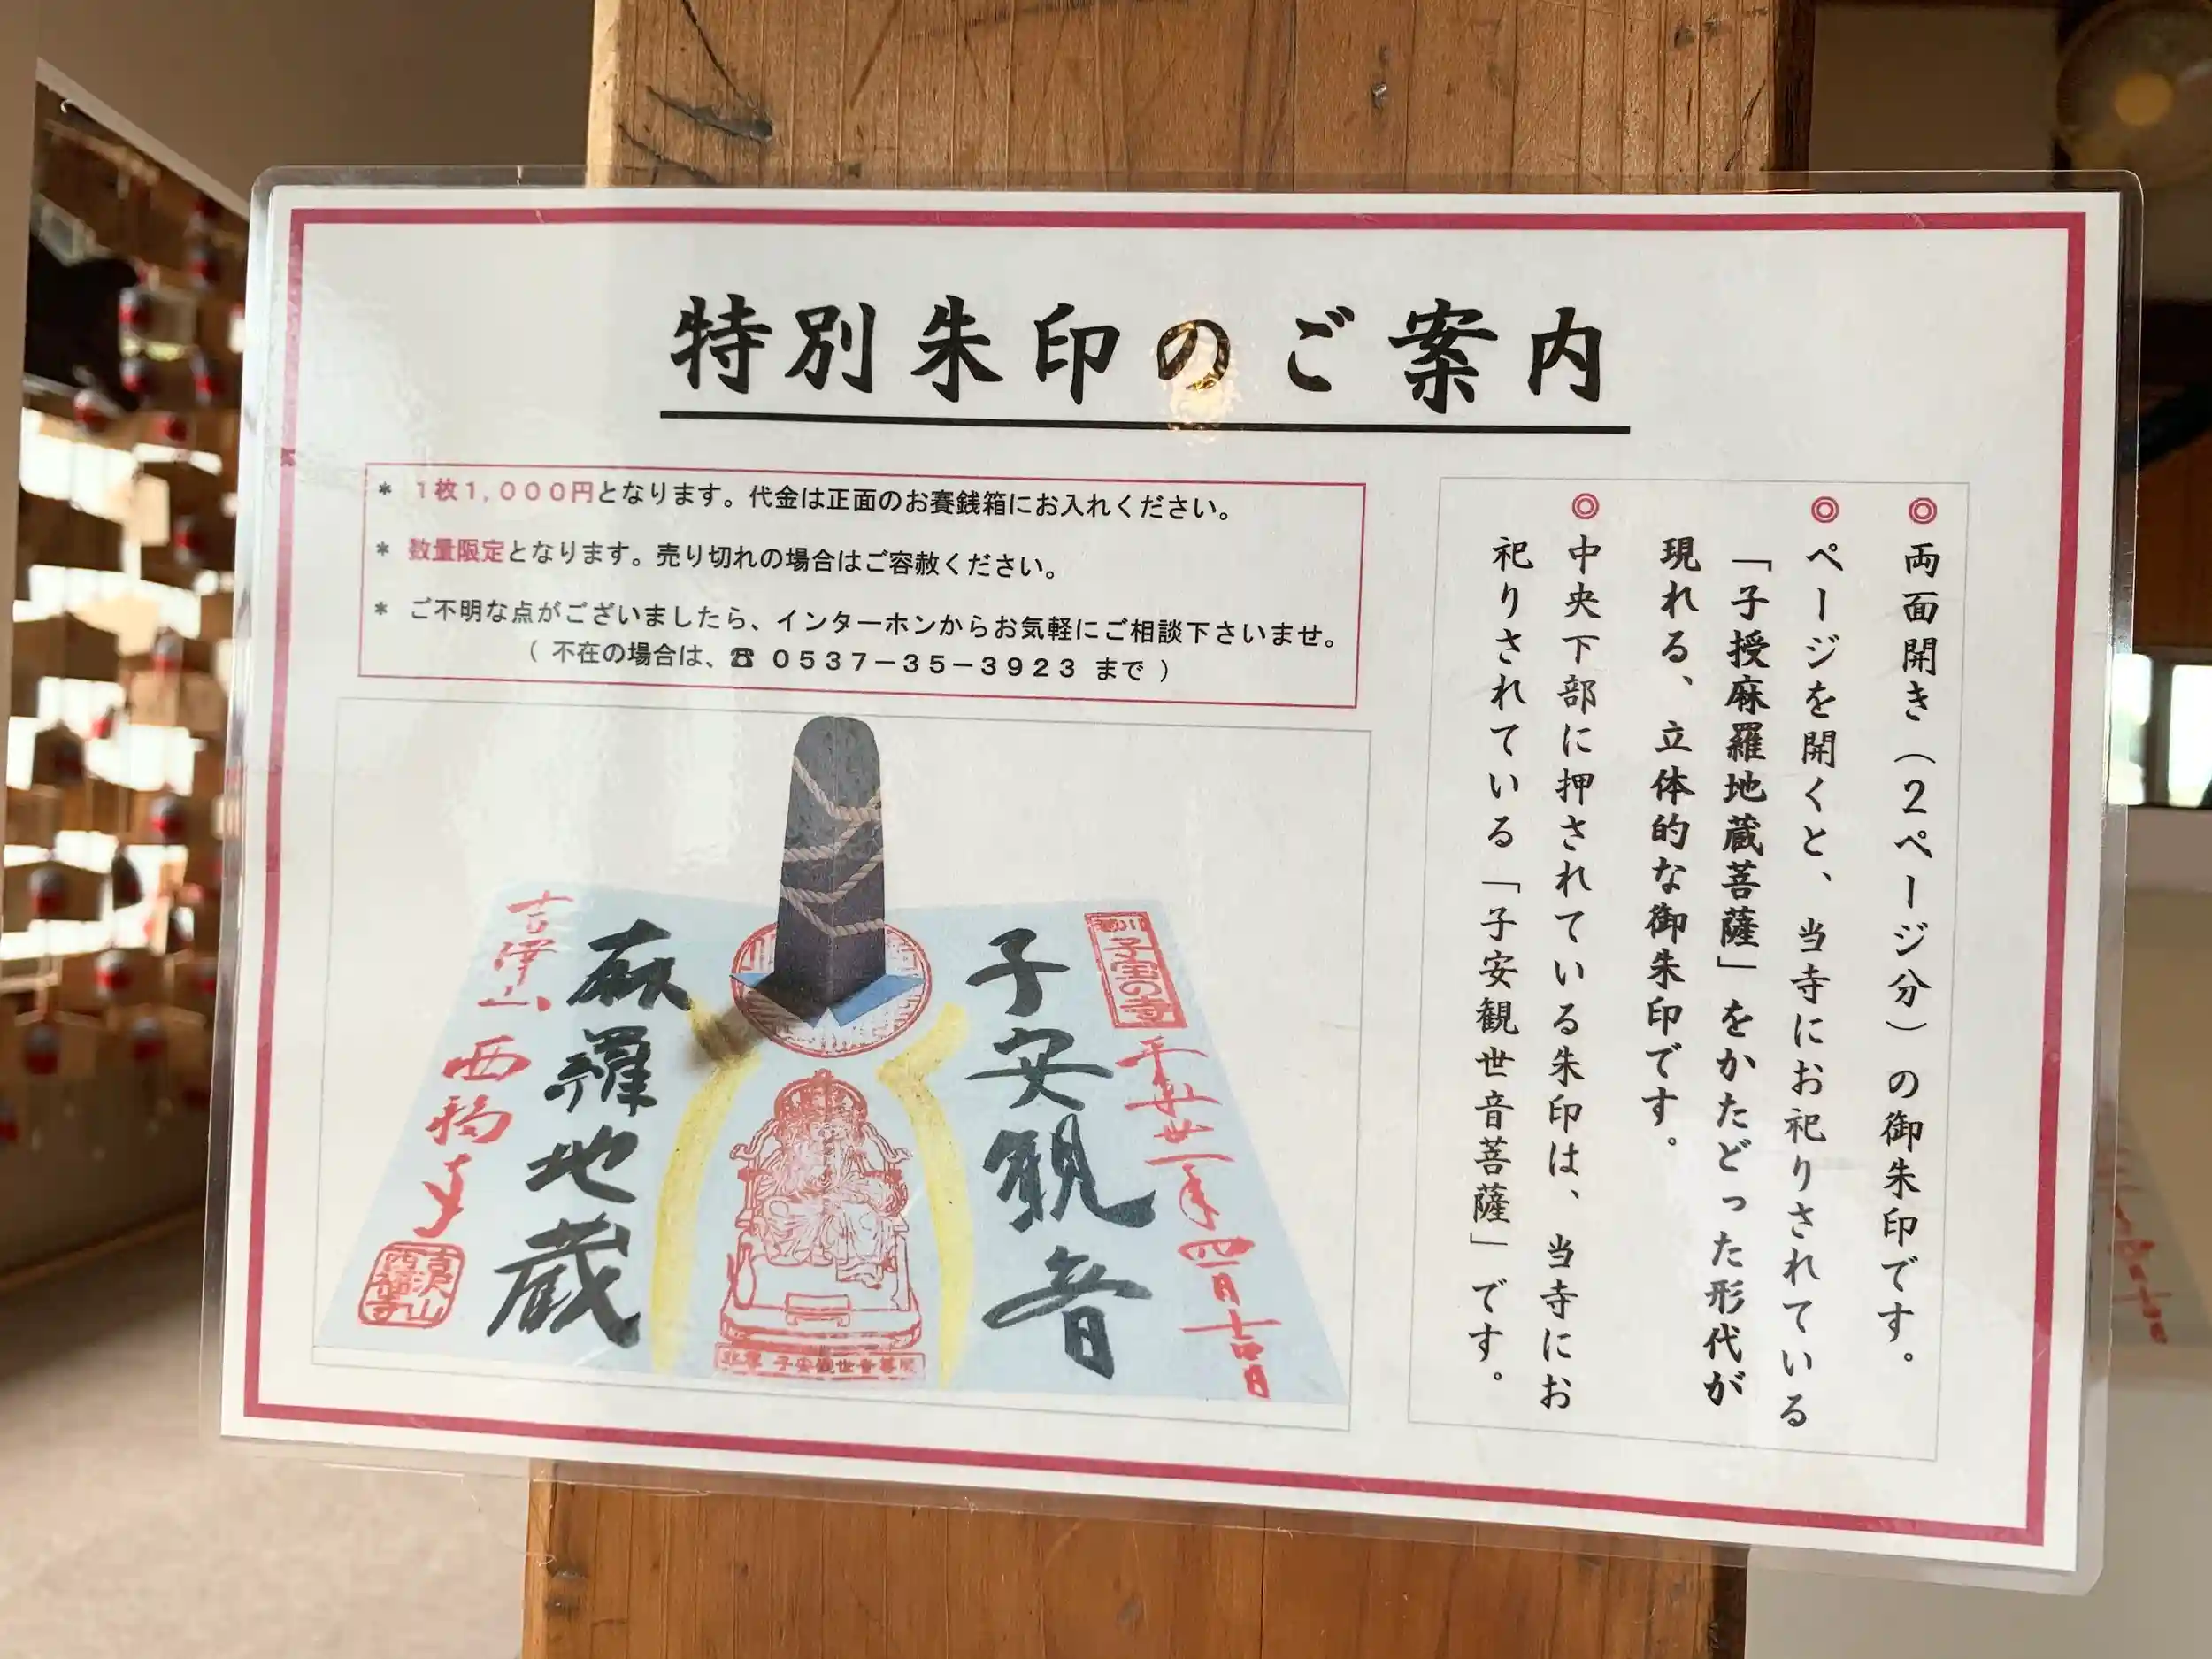 特別朱印のご案内
◎ 両面開き（2ページ分）の御朱印です。
◎ ページを開くと、当寺にお祀りされている
「子授麻羅地蔵菩薩」をかたどった形代が
現れる、立体的な御朱印です。
◎ 中央下部に押されている朱印は、当寺にお
祀りされている「子安観世音菩薩」です。
＊ 1枚1,000円となります。代金は正面のお賽銭箱にお入れください。
＊ 数量限定となります。売り切れの場合はご容赦ください。
＊ ご不明な点がございましたら、インターホンからお気軽にご相談下さいませ。
（ 不在の場合は、☎ 0537－35－3923 まで ）
子宝の寺
平成廿一年四月十四日
子安観音
麻羅地蔵
吉沢山
西福寺